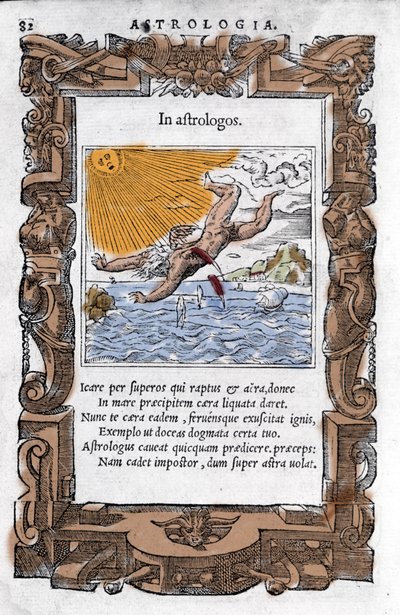 82 ASTROLOGIA.
In aſtrologos.
Icare per ſuperos qui raptus & aëra, donec
In mare præcipitem cæra liquata daret.
Nunc te cæra eadem, feruénsque exuſcitat ignis,
Exemplo ut doceas dogmata certa tuo.
Aſtrologus caueat quicquam prædicere. præceps:
Nam cadet impoſtor, dum ſuper aſtra uolat.